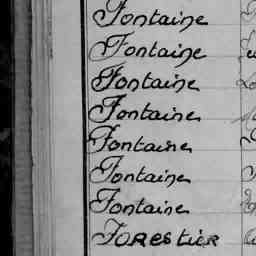 Fontaine
Fontaine
Fontaine
Fontaine
Fontaine
Fontaine
Fontaine
Forestier